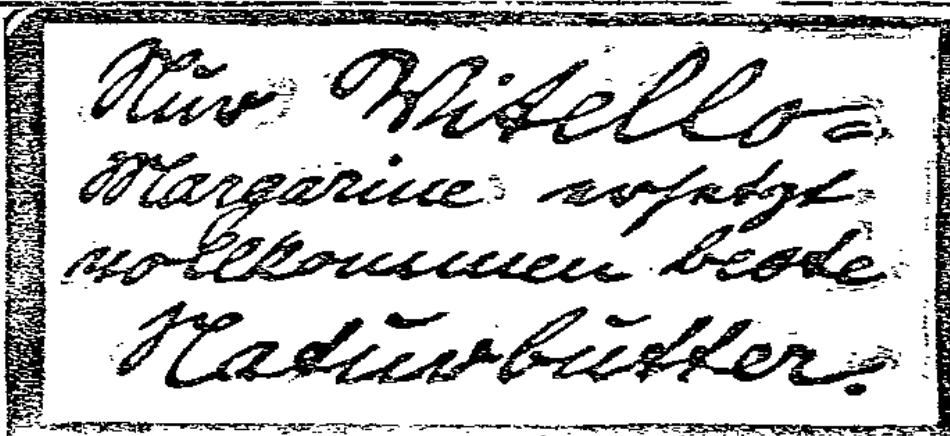 Nur Vitello=
Margarine ersetzt
vollkommen beste
Naturbutter.